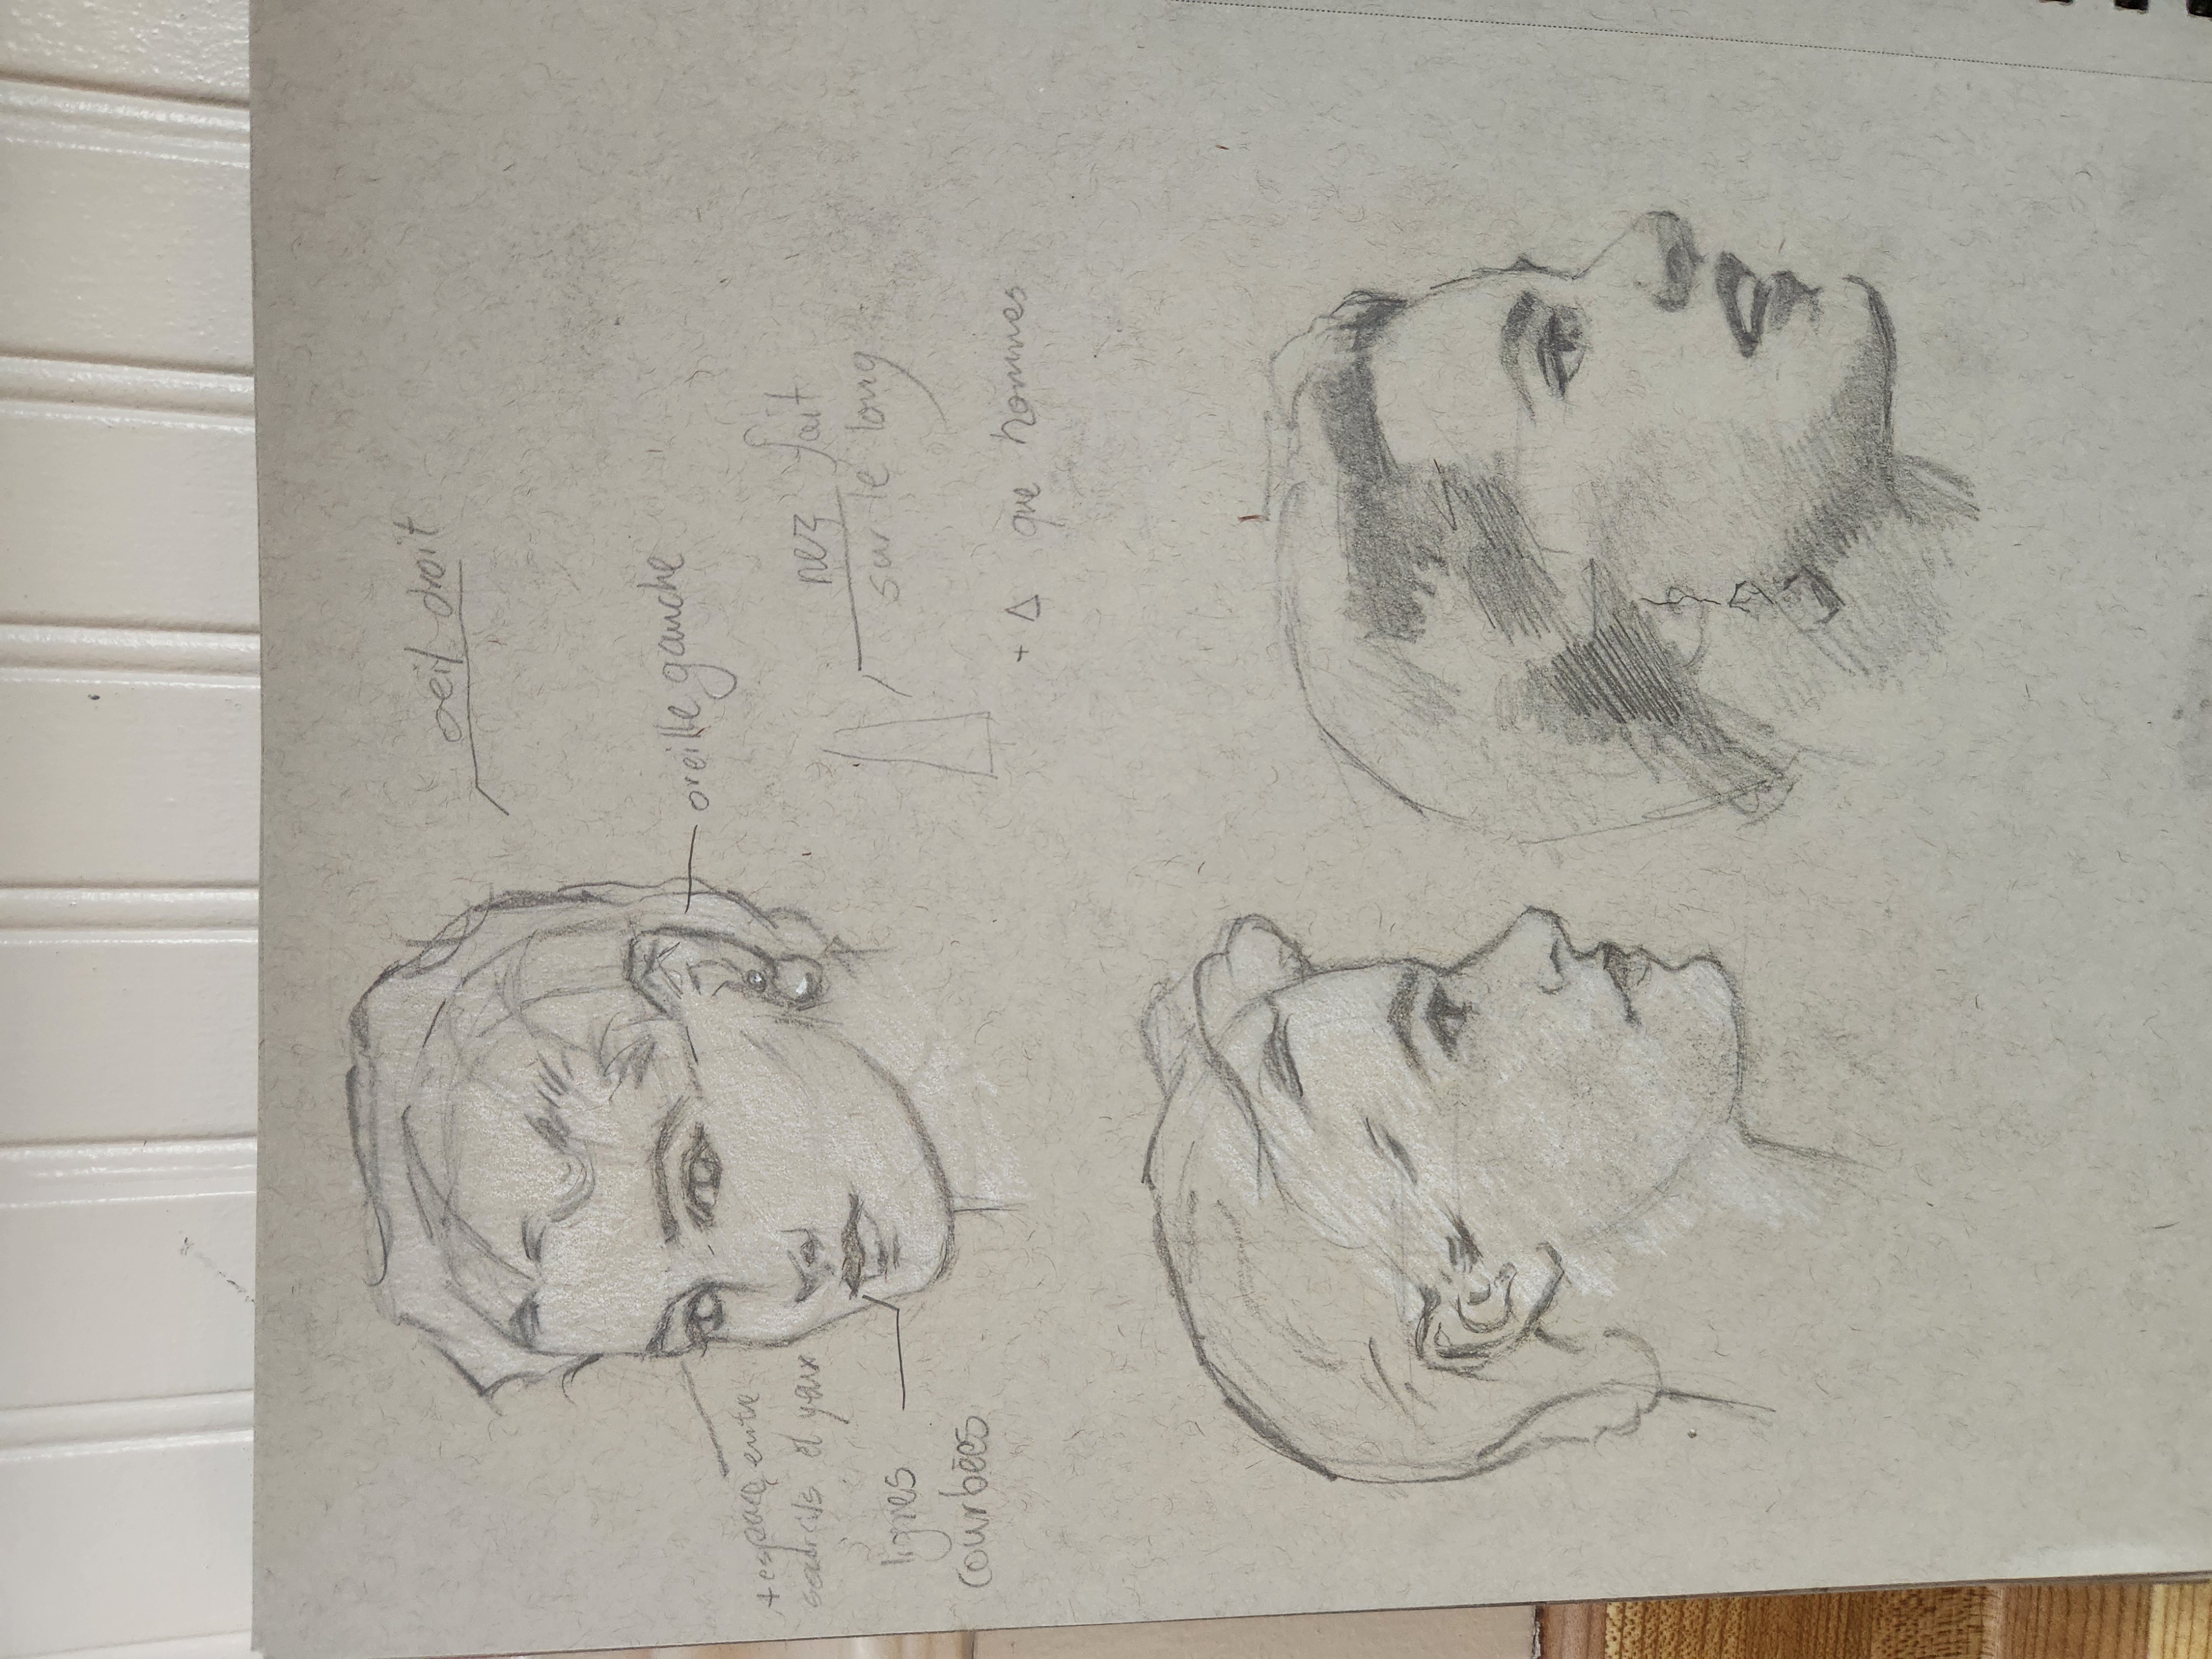 oeil droit
oreille gauche
+ espace entre
sourcils et yeux
lignes
courbées
nez fait
sur le long
+ Δ que hommes